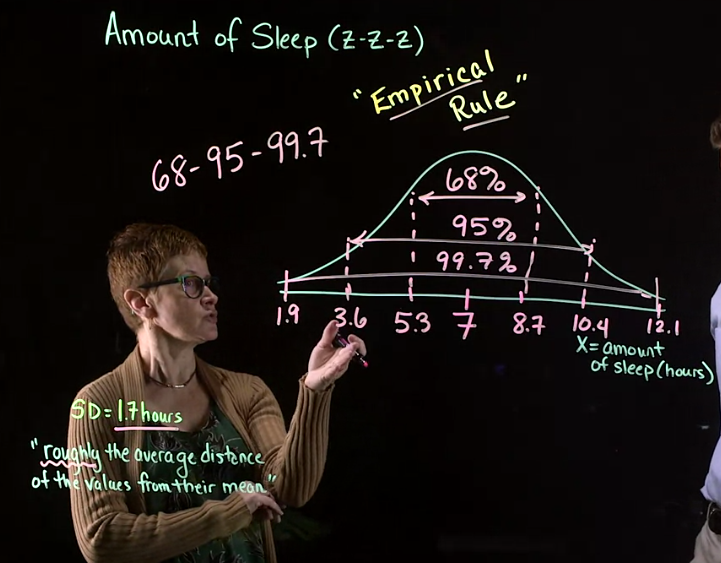 Amount of Sleep (z-z-z)
"Empirical
Rule"
68-95-99.7
68%
95%
99.7%
1.9 3.6 5.3 7 8.7 10.4 12.1
X= amount
of sleep (hours)
SD= 1.7 hours
"roughly the average distance
of the values from their mean"